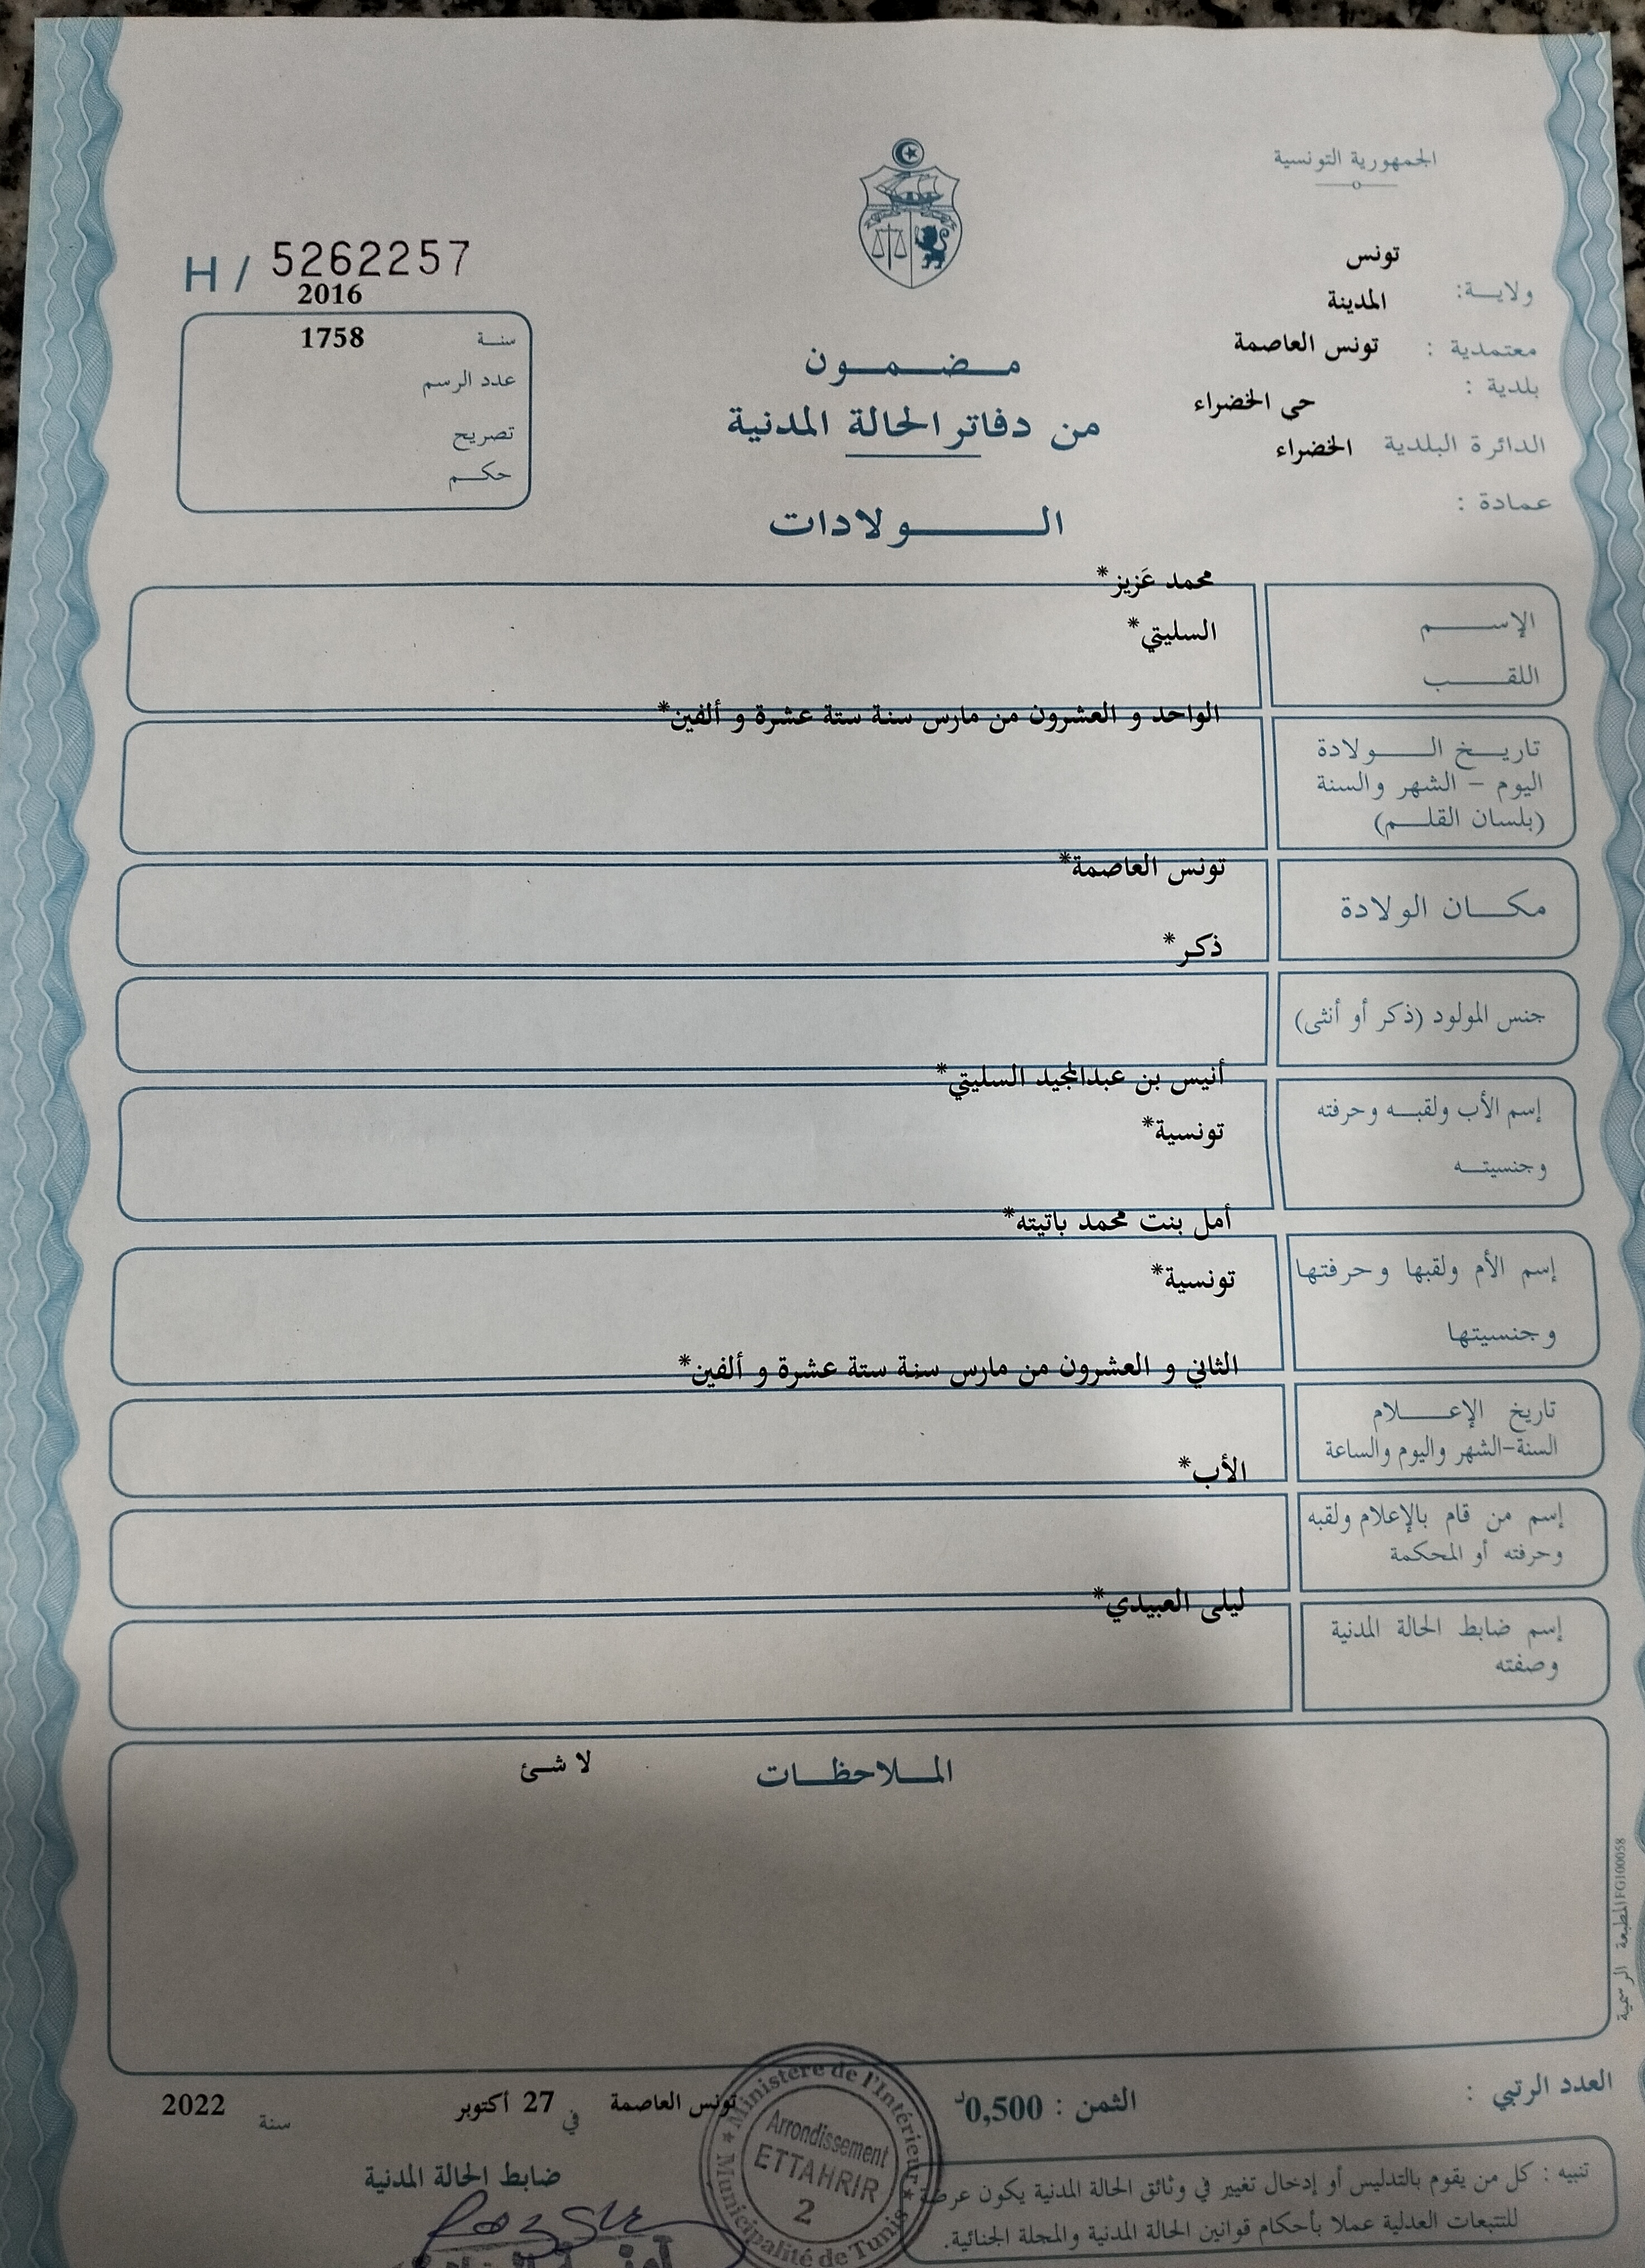 الجمهورية التونسية
H / 5262257
2016
سنة 1758
عدد الرسم
تصريح
حكم
تونس
ولاية:
المدينة
معتمدية : تونس العاصمة
بلدية :
حى الخضراء
الدائرة البلدية الخضراء
عمادة :
مضمون
من دفاتر الحالة المدنية
الولادات
محمد عَزيز*
الإسم
السليتي*
اللقب
الواحد و العشرون من مارس سنة ستة عشرة و ألفين*
تاريخ الولادة
اليوم - الشهر والسنة
(بلسان القلم)
تونس العاصمة*
مكان الولادة
ذكر*
جنس المولود (ذكر أو أنثى)
أنيس بن عبدالمجيد السليتي*
إسم الأب ولقبه وحرفته
تونسية*
وجنسيته
أمل بنت محمد باتيته*
إسم الأم ولقبها وحرفتها
تونسية*
وجنسيتها
الثاني و العشرون من مارس سنة ستة عشرة و ألفين*
تاريخ الإعلام
السنة-الشهر واليوم والساعة
الأب*
إسم من قام بالإعلام ولقبه
وحرفته أو المحكمة
ليلى العبيدي*
إسم ضابط الحالة المدنية
وصفته
الملاحظات لا شئ
المطبعة الرسمية FG100058
العدد الرتبي :
الثمن : 0,500د
تونس العاصمة في 27 أكتوبر سنة 2022
ضابط الحالة المدنية
★ Ministère de l'Intérieur ★
Municipalité de Tunis
Arrondissement
ETTAHRIR
2
تنبيه : كل من يقوم بالتدليس أو إدخال تغيير في وثائق الحالة المدنية يكون عرضة
للتتبعات العدلية عملا بأحكام قوانين الحالة المدنية والمجلة الجنائية.